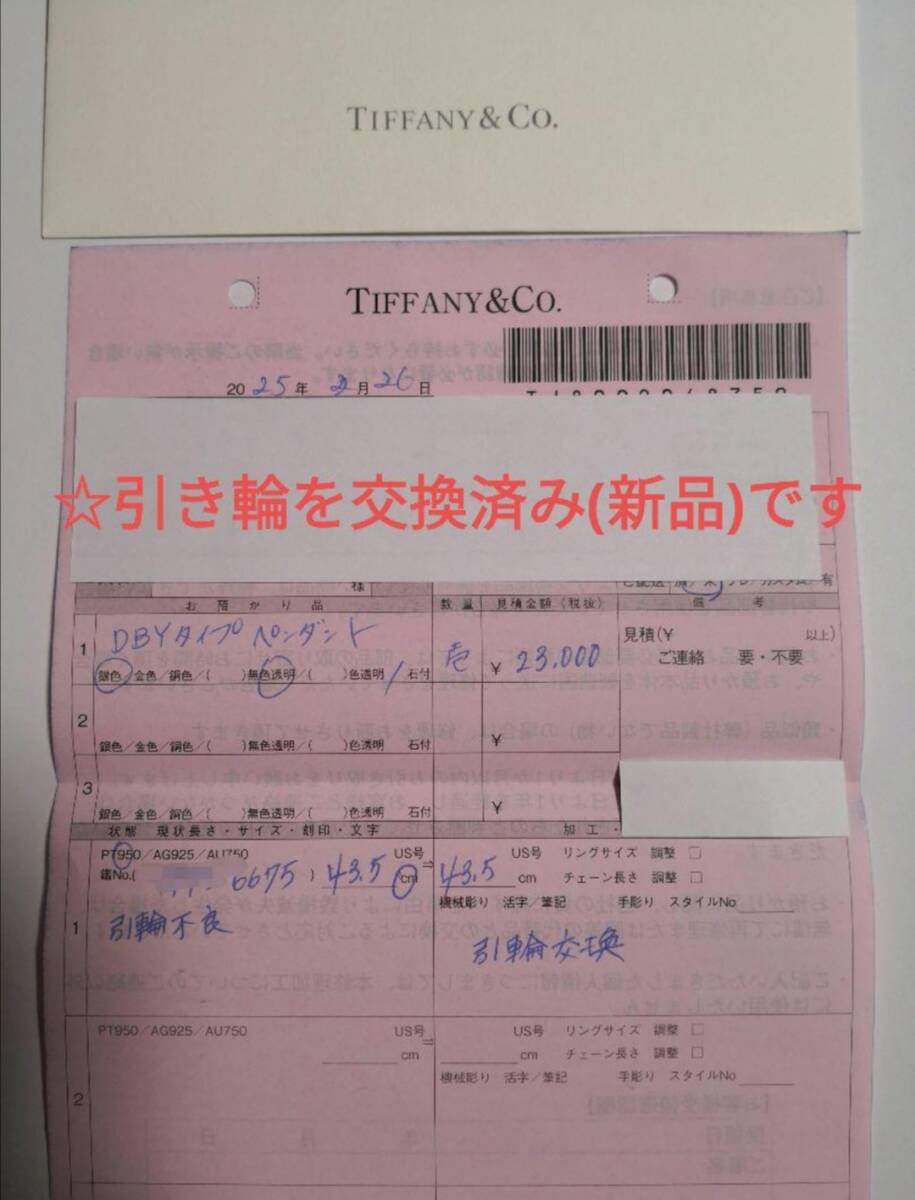 TIFFANY & CO.
TIFFANY&CO.
2025年2月26日
☆引き輪を交換済み(新品)です
様
お預かり品 数量 見積金額(税抜) 備考
1 DBYタイプ ペンダント 壱 ¥ 23,000 見積(¥ 以上)
ご連絡 要・不要
銀色/金色/銅色/( )無色透明/( )色透明 / 石付
2 ¥
銀色/金色/銅色/( )無色透明/( )色透明 石付
3 ¥
銀色/金色/銅色/( )無色透明/( )色透明 石付
状態 現状長さ・サイズ・刻印・文字 加工・
PT950/AG925/AU750 US号⇒ US号 リングサイズ 調整 □
鑑No.( 6675 ) 43.5 cm 43.5 cm チェーン長さ 調整 □
機械彫り 活字/筆記 手彫り スタイルNo
1 引輪不良 引輪交換
PT950/AG925/AU750 US号⇒ US号 リングサイズ 調整 □
cm cm チェーン長さ 調整 □
機械彫り 活字/筆記 手彫り スタイルNo
2